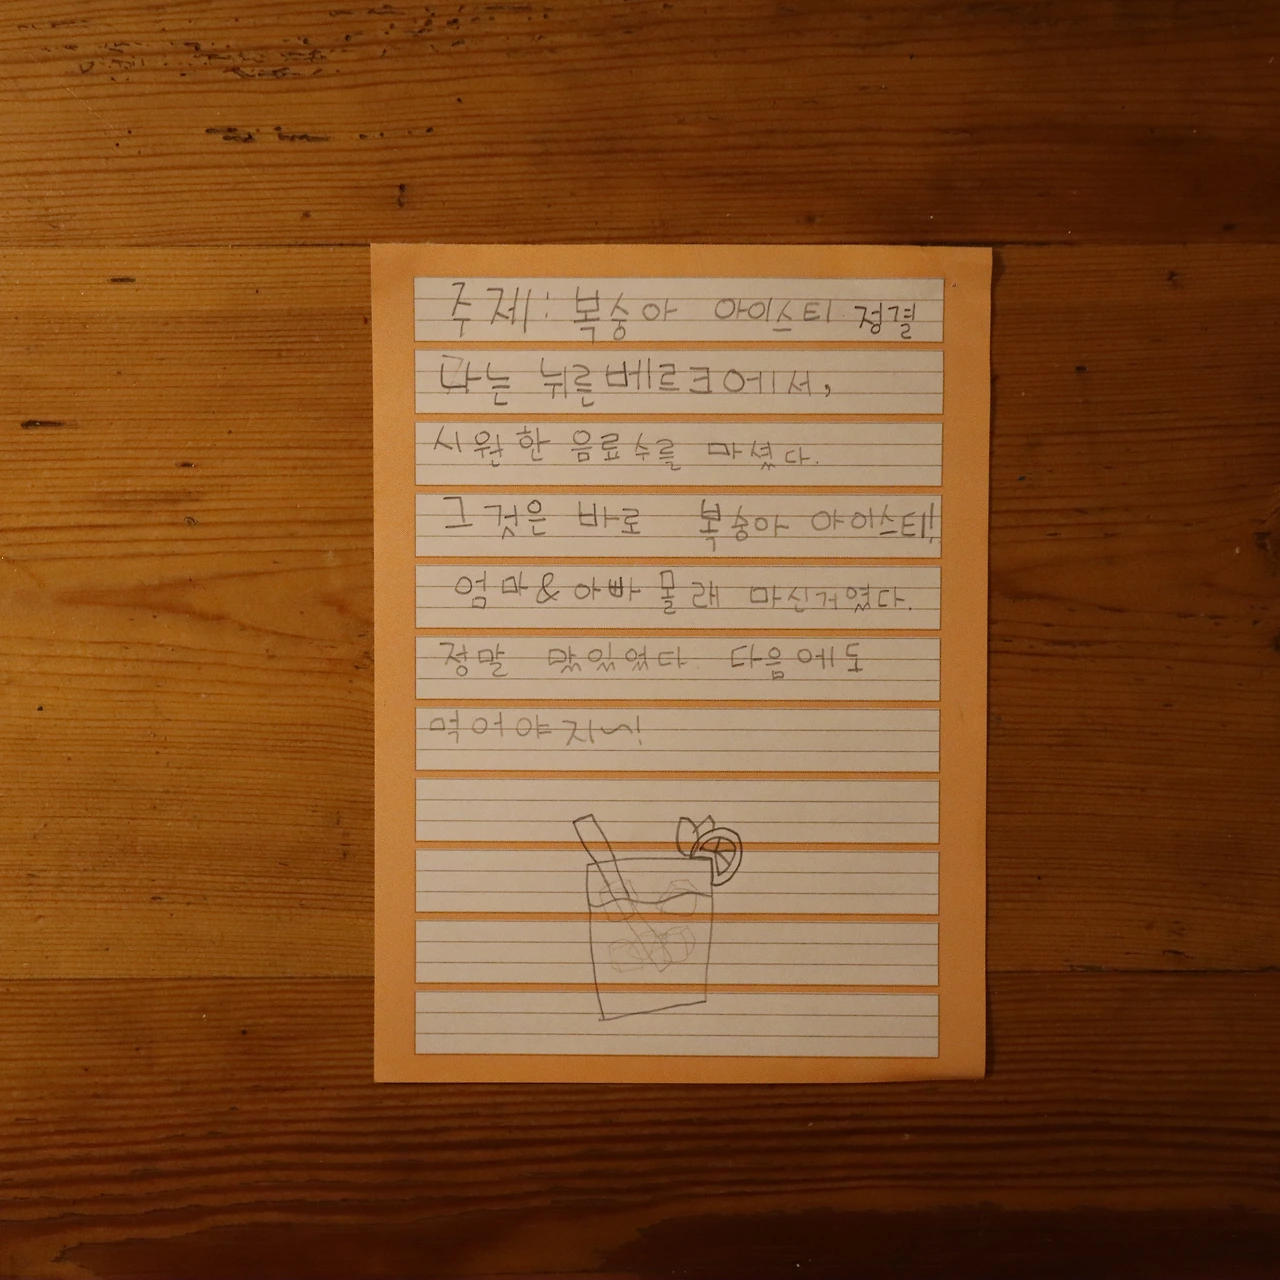 주제: 복숭아 아이스티 정결
나는 뉘른베르크에서,
시원한 음료수를 마셨다.
그것은 바로 복숭아 아이스티!
엄마&아빠 몰래 마신거였다.
정말 맜있었다 다음에도
먹어야지~!